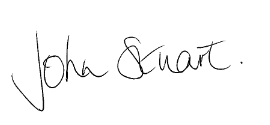 John Stuart.